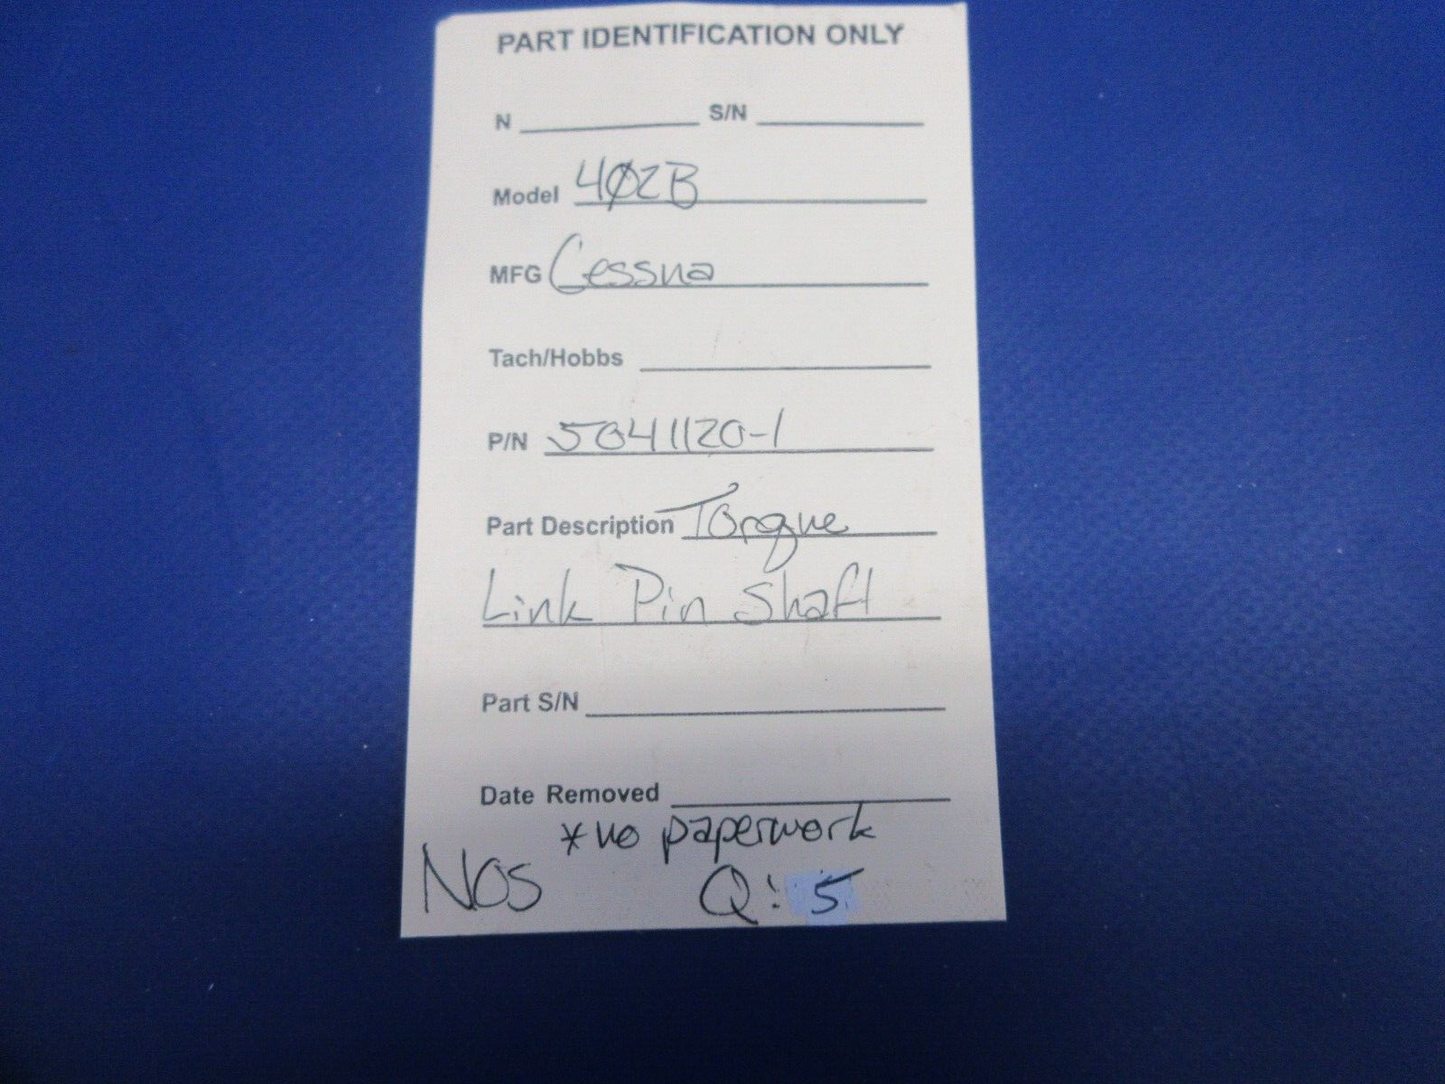 PART IDENTIFICATION ONLY
N S/N
Model 402B
MFG Cessna
Tach/Hobbs
P/N 5041120-1
Part Description Torque
Link Pin Shaft
Part S/N
Date Removed
*no paperwork
NOS Q: 5